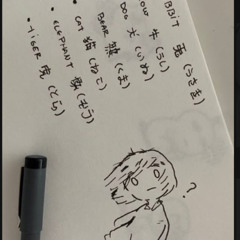 BBiT 兎 (うさぎ)
OW 牛 (うし)
DOG 犬 (いぬ)
BEAR 熊 (くま)
• CAT 猫 (ねこ)
• ELEPHANT 象 (ぞう)
• TiGER 虎 (とら)
?